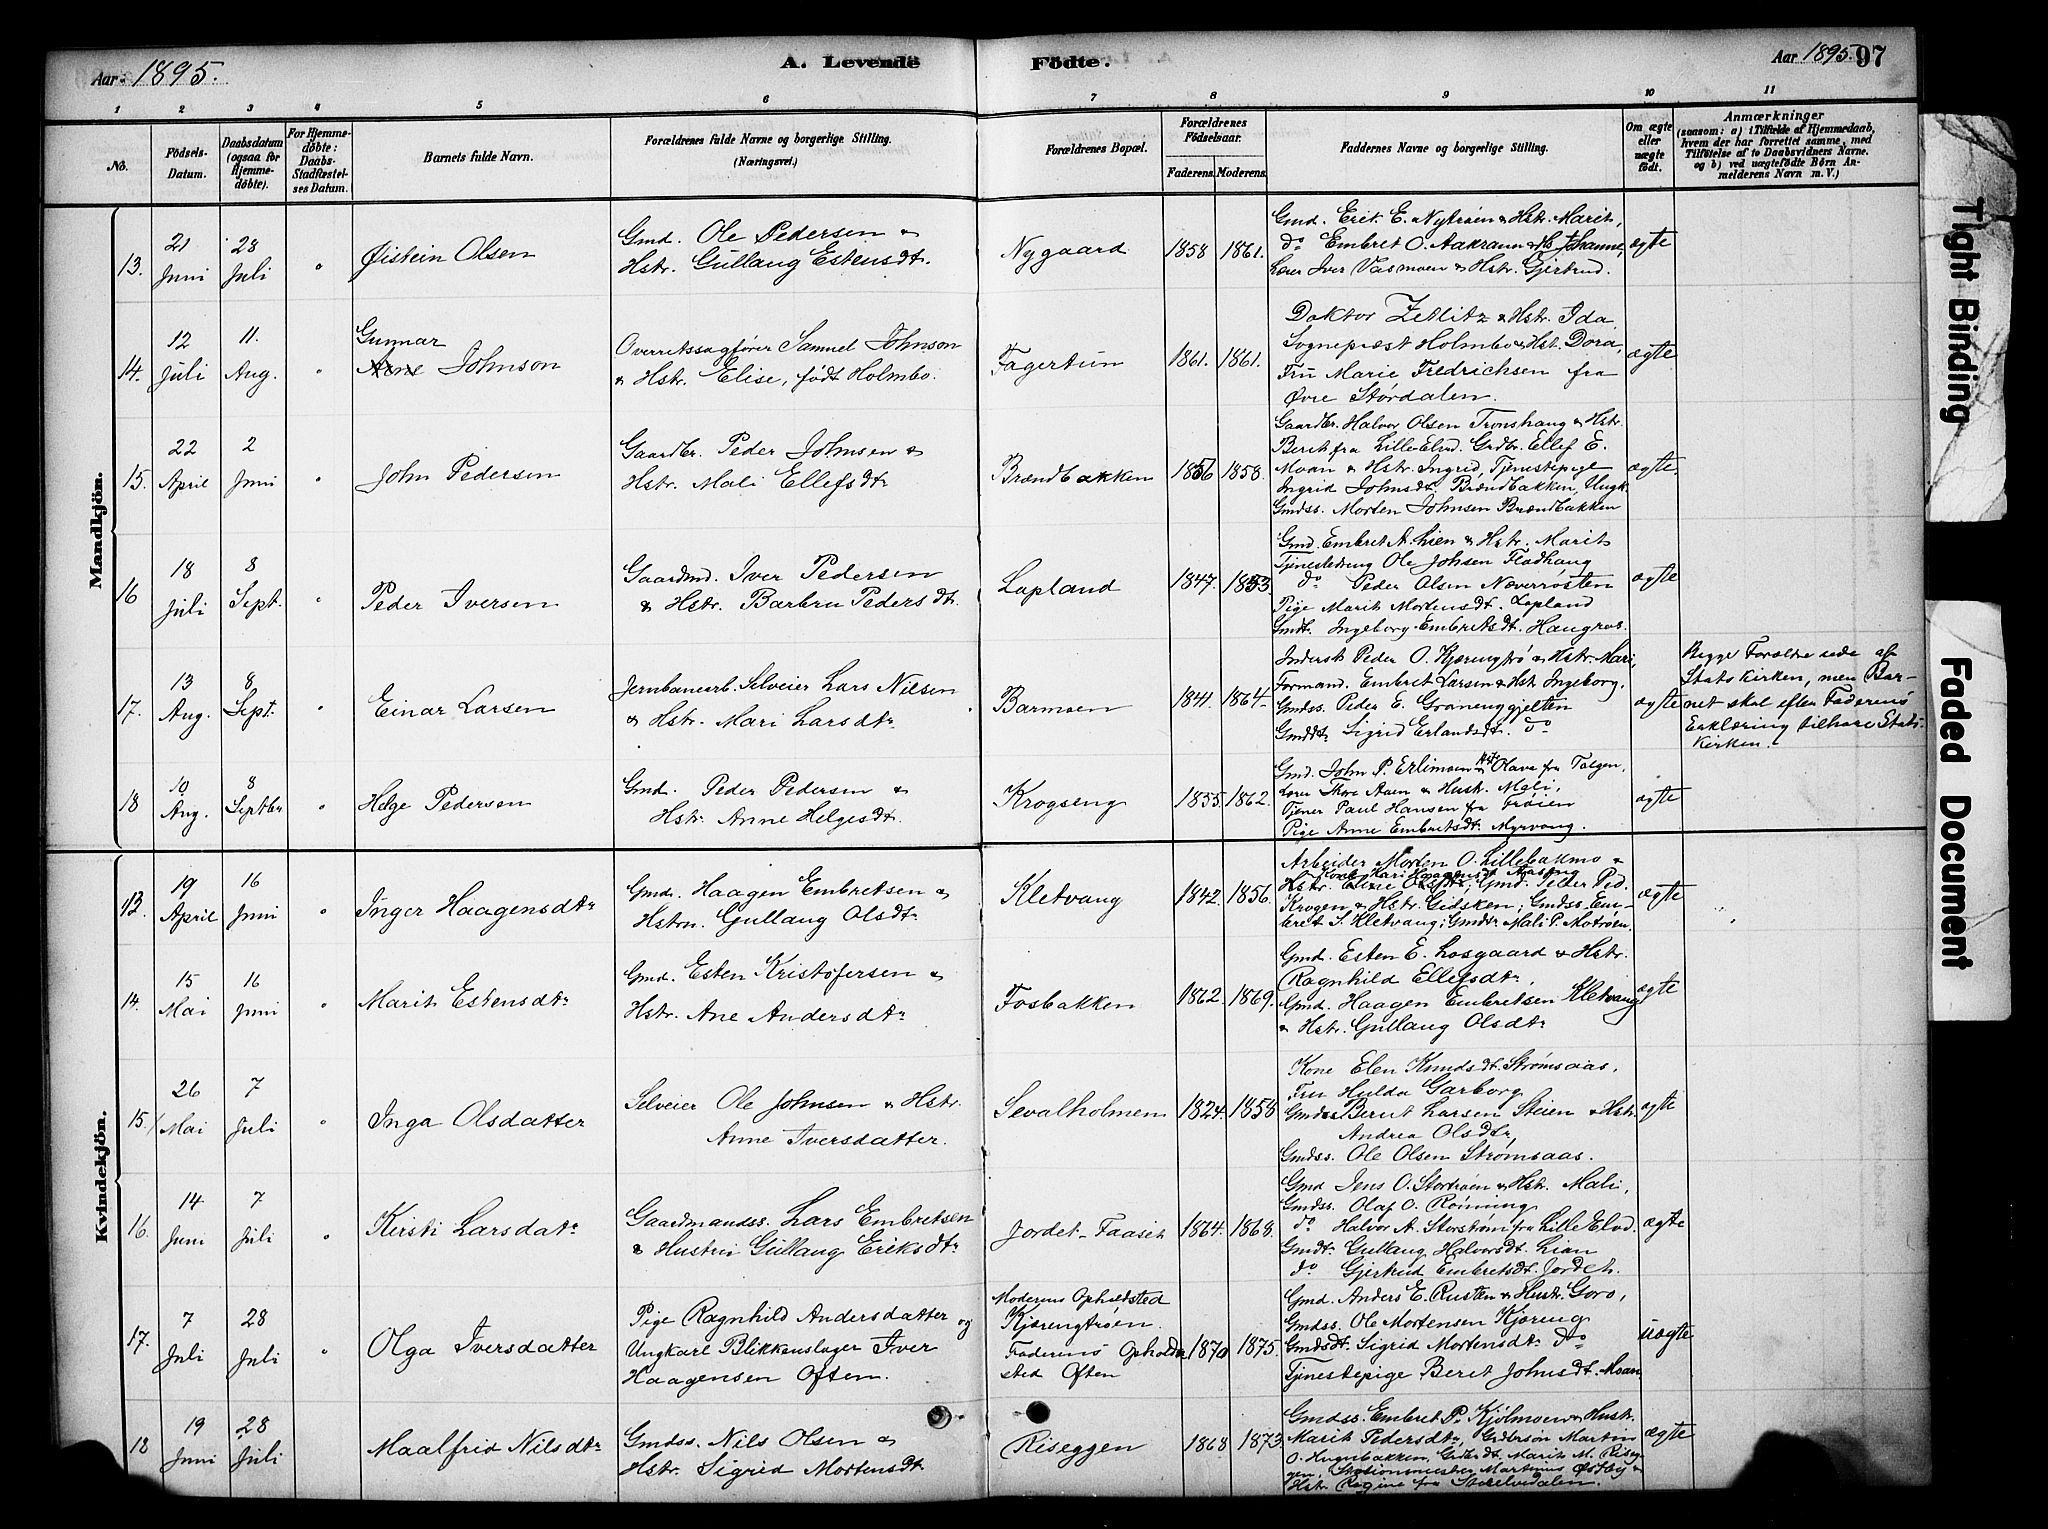 Aar 1895. A. Levende Födte. Aar 1895. 97
1 2 3 4 5 6 7 8 9 10 11
No. Födsels-Datum. Daabsdatum (ogsaa for Hjemmedöbte). For Hjemmedöbte: Daabs-Stadfæstelses Datum. Barnets fulde Navn. Forældrenes fulde Navne og borgerlige Stilling. (Næringsvei.) Forældrenes Bopæl. Forældrenes Födselsaar. Faderens. Moderens. Faddernes Navne og borgerlige Stilling. Om ægte eller uægte födt. Anmærkninger (saasom: a) i Tilfælde af Hjemmedaab, hvem der har forrettet samme, med Tilföielse af to Daabsvidners Navne, og b) ved uægtefödte Börn Anmelderens Navn m. V.)
Mandkjön.
13. 21 Juni 28 Juli " Øistein Olsen
Gmd. Ole Pedersen &
Hstr. Gullaug Estensdt.
Nygaard 1858 1861.
Gmd. Erik E. Nytrøen & Hstr. Marit,
do Embret O. Aakrann & Hs Johanne,
Lærer Iver Vasmoen & Hstr. Gjertrud.
ægte
14. 12 Juli 11. Aug. " Gunnar
Arne Johnson
Overretssagfører Samuel Johnson
& Hstr. Elise, født Holmbo.
Fagertun 1861. 1861.
Doktor Zetlitz & Hstr. Ida
Sognepræst Holmbo & Hst. Dora,
Fru Marie Fredrichsen fra
Øvre Stördalen.
ægte
15. 22 April 2 Juni " John Pedersen
Gaardbr. Peder Johnsen &
Hstr. Mali Ellefsdtr
Brændbakken 1856 1858.
Gaardbr. Halvor Olsen Tronshaug & Hstr.
Berit fra Lille-Elvd. Grdbr. Ellef E.
Moan & Hstr. Ingrid, Tjenestepige
Ingrid Johnsdt. Brændbakken, Ungk.
Gmdss. Morten Johnsen Brændbakken
ægte
16 18 Juli 8 Sept. " Peder Iversen
Gaardmd. Iver Pedersen
& Hstr. Barbru Pedersdt.
Lapland 1847. 1853.
Gmd. Embret A. Lien & Hstr. Marit
Tjenestedreng Ole Johsen Flodhaug
do Peder Olsen Næverrösten
Pige Marit Mortensdt. Lapland
Gmdt. Ingeborg Embretsdt. Haugros.
ægte
17. 13 Aug. 8 Sept. " Einar Larsen
Jernbanearb. Selveier Lars Nilsen
& Hstr. Mari Larsdtr
Barmoen 1841. 1864.
Inderst Peder O. Kjæringtrø & Hstr. Mari,
Formand. Embret Larsen & Hst. Ingeborg.
Gmdss. Peder E. Grønenggjelten
Gmddtr Sigrid Erlandsdt. do
ægte
Begge Forældre ude af
Statskirken, men Bar-
net skal efter Faderens
Erklæring tilhøre Stats-
kirken.
18 10 Aug. 8 Septbr " Helge Pedersen
Gmd. Peder Pedersen &
Hstr. Anne Helgesdt.
Krogseng 1855. 1862.
Gmd. John P. Erlimoen & Hstr Olava fra Tolgen,
Lærer Thore Aaen & Hustr. Mali,
Tjener Paul Hansen fra Trøien
Pige Anne Embretsdt. Myrvang.
ægte
Kvindekjön.
13. 19 April 16 Juni " Inger Haagensdtr
Gmd. Haagen Embretsen &
Hstru. Gullaug Olsdtr
Kletvang 1842. 1856.
Arbeider Morten O. Lillebakmo &
Hstr. Oline Olsdtr; Kone Kari Haagensdt Aaseng Gmd. Peder Ped.
Krogen & Hstr. Gidsken; Gmdss. Em-
bret S. Kletvang; Gmdtr Mali P. Motrøen.
ægte
14. 15 Mai 16 Juni " Marit Estensdtr
Gmd. Esten Kristofersen &
Hstr. Ane Andersdtr
Fosbakken 1862. 1869.
Gmd. Esten E. Losgaard & Hstr.
Ragnhild Ellefsdtr,
Gmd. Haagen Embretsen Kletvang
& Hstr. Gullaug Olsdtr
ægte
15. 26 Mai 7 Juli " Inga Olsdatter
Selveier Ole Johnsen & Hstr.
Anne Iversdatter.
Sevalholmen 1824. 1858
Kone Elen Knudsdt. Strømsaas,
Fru Hulda Garborg
Gmdss Bernt Larsen Steien & Hstr
Andrea Olsdtr,
Gmdss. Ole Olsen Strømsaas.
ægte
16. 14 Juni 7 Juli " Kirsti Larsdatr
Gaardmandss. Lars Embretsen
& Hustru Gullaug Eriksdtr
Jordet-Faaset 1864. 1868.
Gmd Jens O. Stortrøen & Hstr. Mali,
Gmdss. Olaf O. Rønning
do Halvor A. Storstrøm fra Lille Elvd.
Gmdt. Gullaug Halvorsdt. Lian
do Gjertrud Embretsdt. Jordet.
ægte
17. 7 Juli 28 Juli " Olga Iversdatter
Pige Ragnhild Andersdatter og
Ungkarl Blikkenslager Iver
Haagensen Often.
Moderens Opholdsted
Kjæringtrøen.
Faderens Ophold
sted Often
1870 1875.
Gmd. Anders E. Rusten & Hustr. Goro,
Gmdss. Ole Mortensen Kjøreng
Gmdsdt. Sigrid Mortensdtr do
Tjenestepige Berit Johnsdt. Moan
uægte
18 19 Juni 28 Juli Maalfrid Nilsdtr
Gmdss. Nils Olsen &
Hstr. Sigrid Mortensdt
Riseggen 1868 1873.
Gmdss. Embret P. Kjølmoen & Hustr.
Marit Pedersdtr, Grdbrsøn Martin
O. Hugubakken, Grdsdt. Marit M. Riseg-
gen, Stationsmester Martinus Østby &
Hstr. Ragine fra Storelvedalen.
ægte
Tight Binding
Faded Document